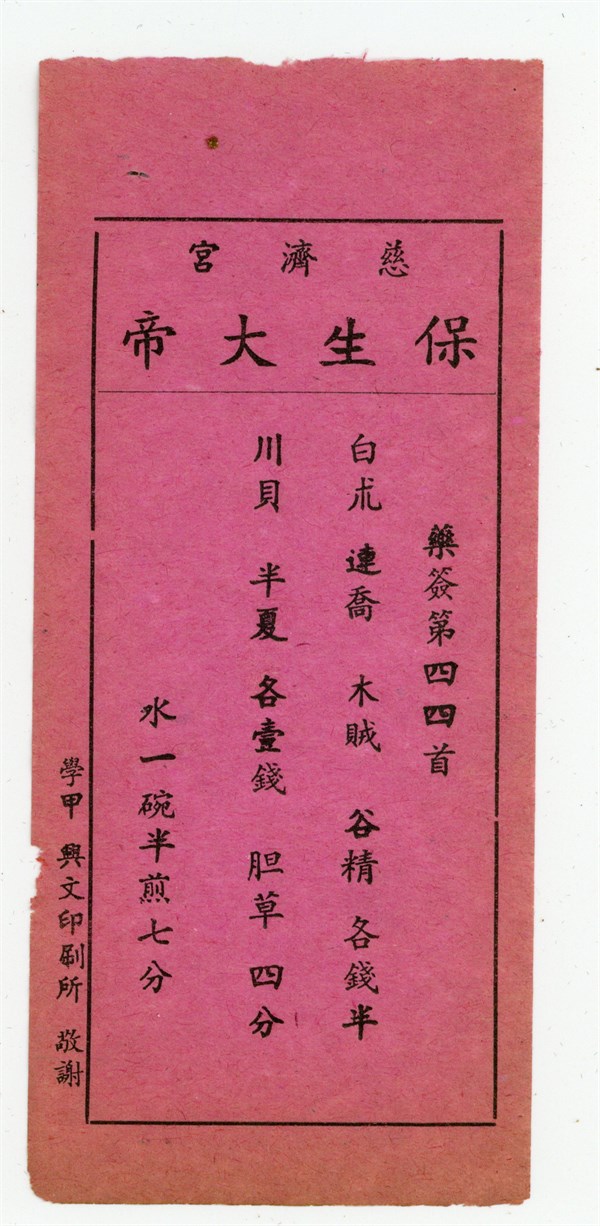 慈濟宮
保生大帝
藥簽第四四首
白朮 連喬 木賊 谷精 各錢半
川貝 半夏 各壹錢 胆草 四分
水一碗半煎七分
學甲 興文印刷所 敬謝